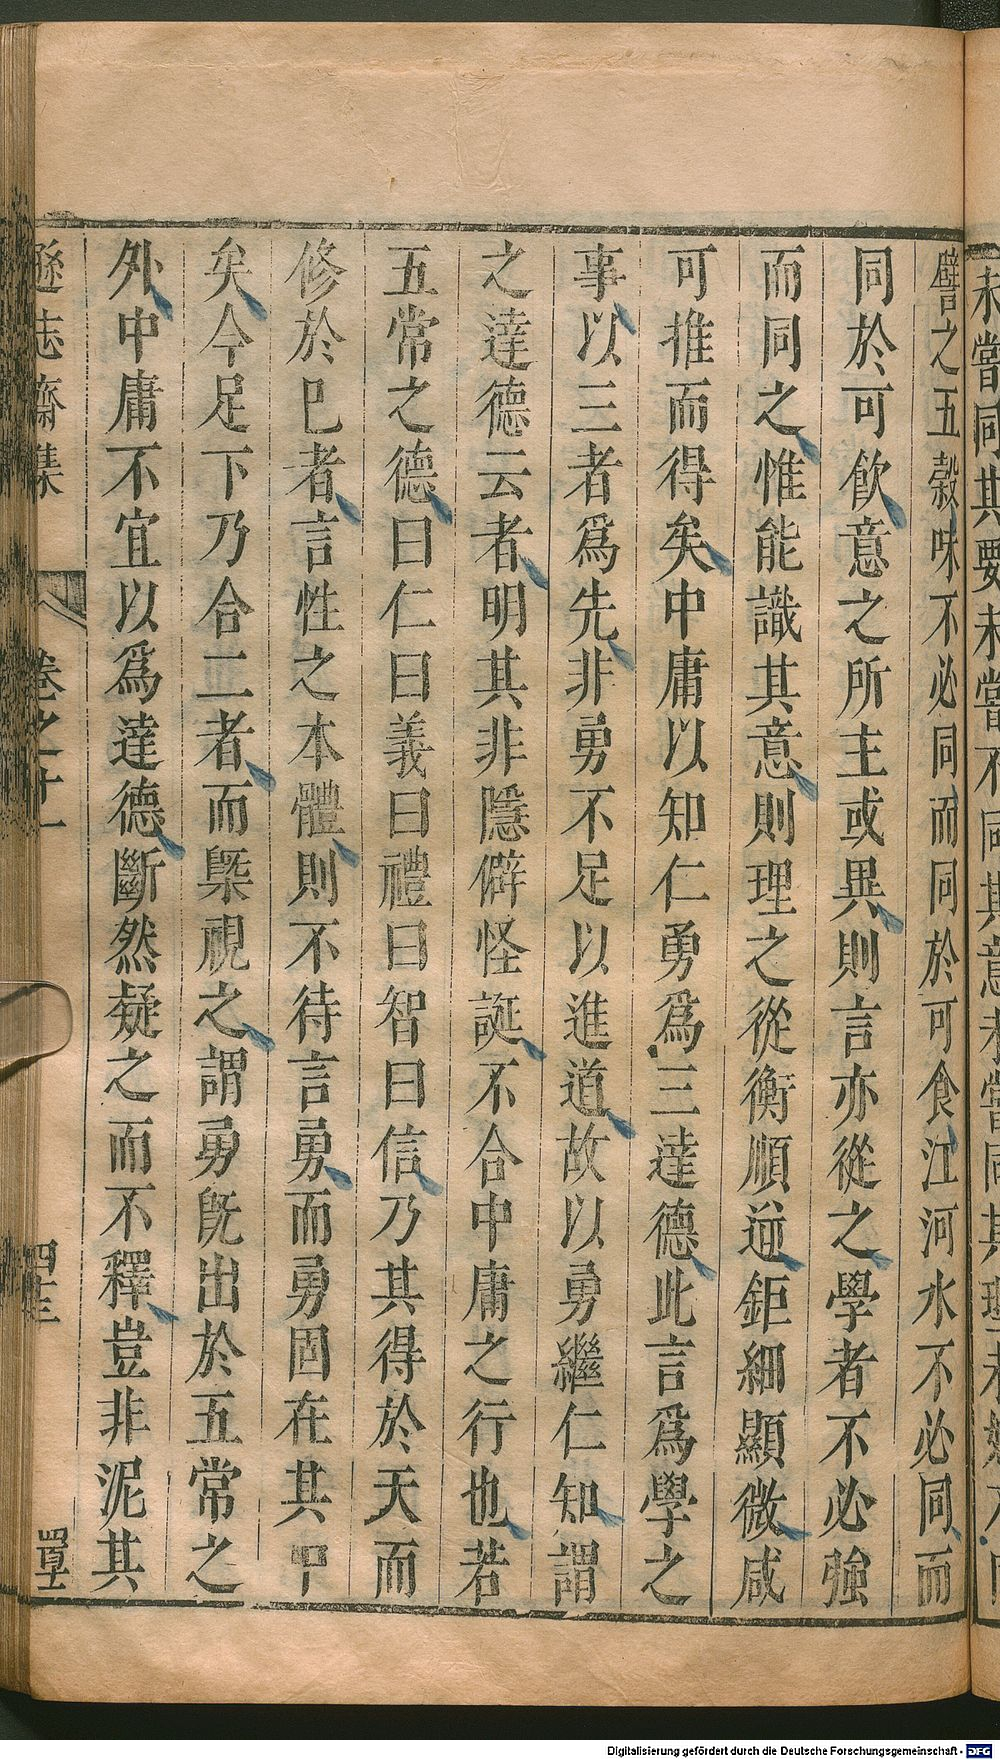 未嘗同其要未嘗不同其意未嘗同其理未
譬之五穀味不必同而同於可食江河水不必同而
同於可飲意之所主或異則言亦從之學者不必強
而同之惟能識其意則理之從衡順逆鉅細顯微咸
可推而得矣中庸以知仁勇為三達德此言為學之
事以三者為先非勇不足以進道故以勇繼仁知謂
之達德云者明其非隱僻怪誕不合中庸之行也若
五常之德曰仁曰義曰禮曰智曰信乃其得於天而
修於已者言性之本體則不待言勇而勇固在其中
矣今足下乃合二者而槩視之謂勇旣出於五常之
外中庸不宜以為達德斷然疑之而不釋豈非泥其
遜志齋集 卷之十一
Digitalisierung gefördert durch die Deutsche Forschungsgemeinschaft - DFG